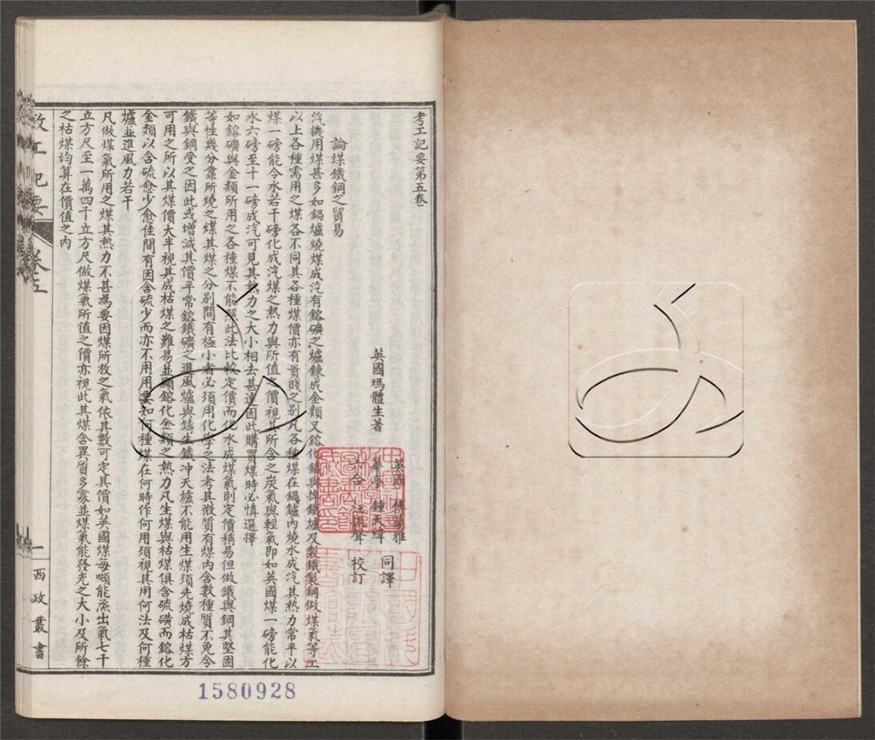 考工記要第五卷
英國瑪體生著
同譯
校訂
論煤鐵鋼之貿易
汽機用煤甚多如鍋爐燒煤成汽有鎔礦之爐鍊成金類又鎔化鐵與掉鐵爐及製鐵製鋼做煤氣等工
以上各種需用之煤各不同其各種煤價亦有貴賤之別凡各種煤在鍋爐內燒水成汽其熱力常平以
煤一磅能令水若干磅化成汽煤之熱力與所值之價視其所含之炭氣與輕氣即如英國煤一磅能化
水六磅至十一磅成汽可見其熱力之大小相去甚遠因此購買煤時必慎選擇
如鎔礦與金類所用之各種煤不能照此法比較定價而化水成煤氣則定價稍易但做鐵與鋼其堅固
等性幾分靠所燒之煤其煤之分別間有極小者必須用化學之法考其微質有煤內含數種質不免令
鐵與鋼受之因此或增減其價平常鎔鐵礦之進風爐與鑄生鐵冲天爐不能用生煤須先燒成枯煤方
可用之所以其煤價大半視其成枯煤之難易並顯鎔化金類之熱力凡生煤與枯煤俱含硫磺而鎔化
金類以含硫愈少愈佳間有因含硫少而亦不用用要知何種煤在何時作何用須視其用何法及何種
爐並進風力若干
凡做煤氣所用之煤其熱力不甚為要因煤所放之氣依其數可定其價如英國煤每噸能蒸出氣七千
立方尺至一萬四千立方尺做煤氣所值之價亦視此其煤含異質多寡並煤氣能發光之大小及所餘
之枯煤均算在價值之內
攷工記要
卷五
一
西政叢書
1580928